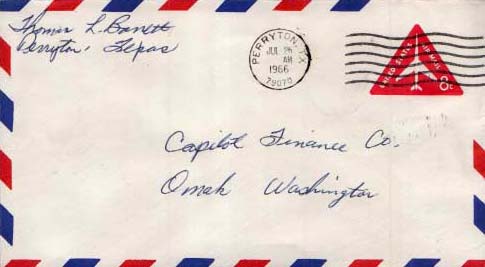 Thomas L. Barrett
Perryton, Texas
PERRYTON, TX
JUL 26
AM
1966
79070
UNITED STATES AIR MAIL
8c
Capitol Finance Co.
Omak Washington